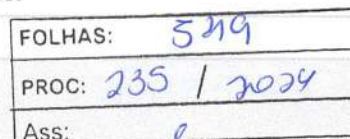 FOLHAS: 549
PROC: 235 / 2024
Ass: